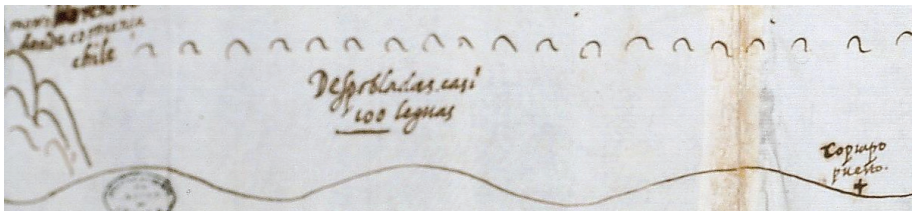 donde comiença
chile
Despobladas. casi
100 leguas
Copiapo
puerto.